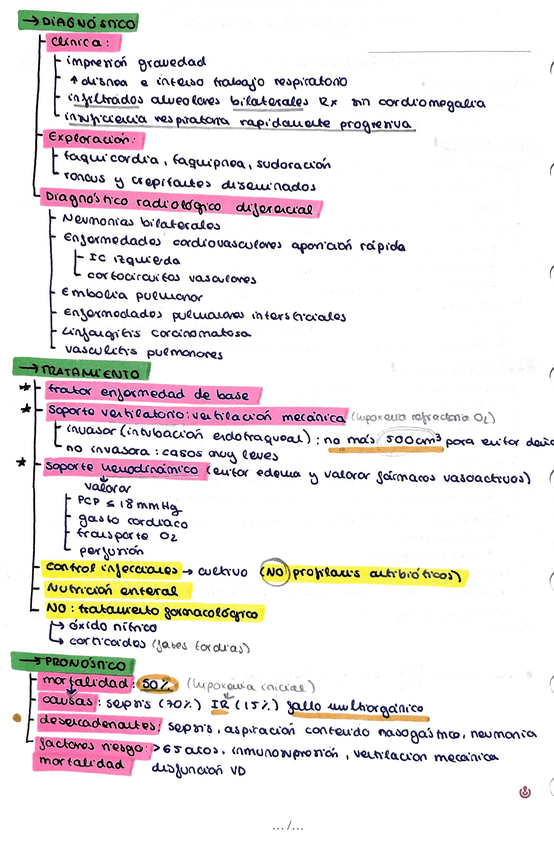 → DIAGNÓSTICO
Clínica:
impresión gravedad
↑ disnea e intenso trabajo respiratorio
infiltrados alveolares bilaterales Rx sin cardiomegalia
insuficiencia respiratoria rapidamente progresiva
Exploración:
taquicardia, taquipnea, sudoración
roncus y crepitantes diseminados
Diagnóstico radiológico diferencial
Neumonias bilaterales
Enfermedades cardiovasculares aparición rápida
IC izquierda
cortocircuitos vasculares
Embolia pulmonar
Enfermedades pulmonares intersticiales
Linfangitis carcinomatosa
vasculitis pulmonares
→ TRATAMIENTO
* tratar enfermedad de base
* soporte ventilatorio: ventilación mecánica (hipoxemia refractaria O₂)
invasor (intubación endotraqueal): no más 500cm³ para evitar
no invasora: casos muy leves
* soporte hemodinámico (evitar edema y valorar fármacos vasoactivos)
valorar
PCP ≤ 18mmHg
gasto cardiaco
transporte O₂
perfusión
control infecciones → cultivo (NO profilaxis antibióticos)
Nutrición enteral
NO: tratamiento farmacológico
↳ óxido nítrico
↳ corticoides (fases tardías)
→ PRONÓSTICO
mortalidad: 50% (hipoxemia inicial)
causas: sepsis (70%) IR (15%) fallo multiorgánico
desencadenantes: sepsis, aspiración contenido nasogástrico, neumonia
factores riesgo: >65 años, inmunosupresión, ventilación mecánica
mortalidad disfunción VD
.../...